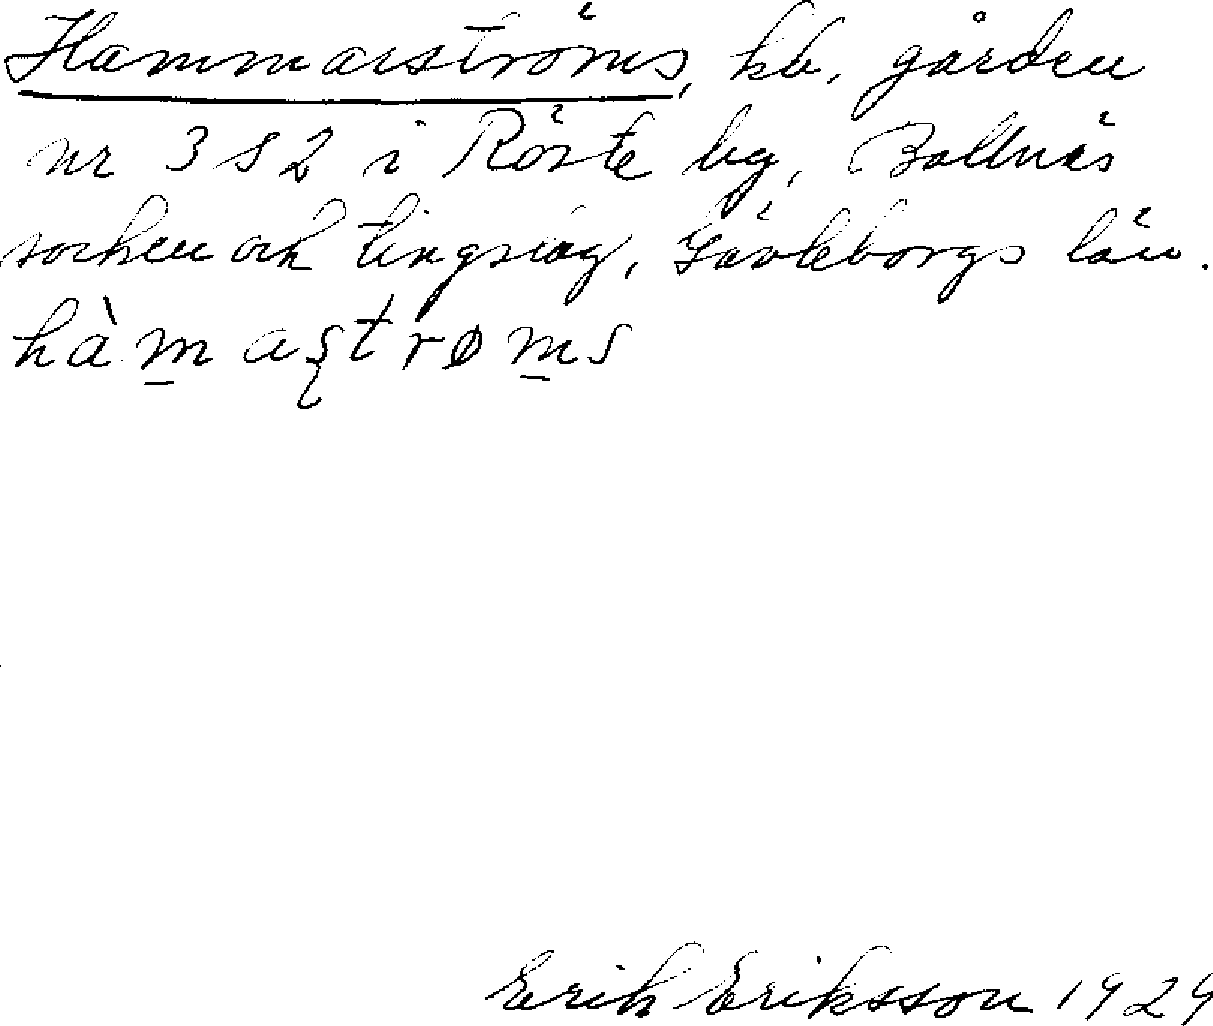 Hammarströms, hb. gården
nr 3 S 2 i Röste by, Bollnäs
socken och tingslag, Gävleborgs län.
hàm̲aʂtrøm̲s
Erik Eriksson 1929